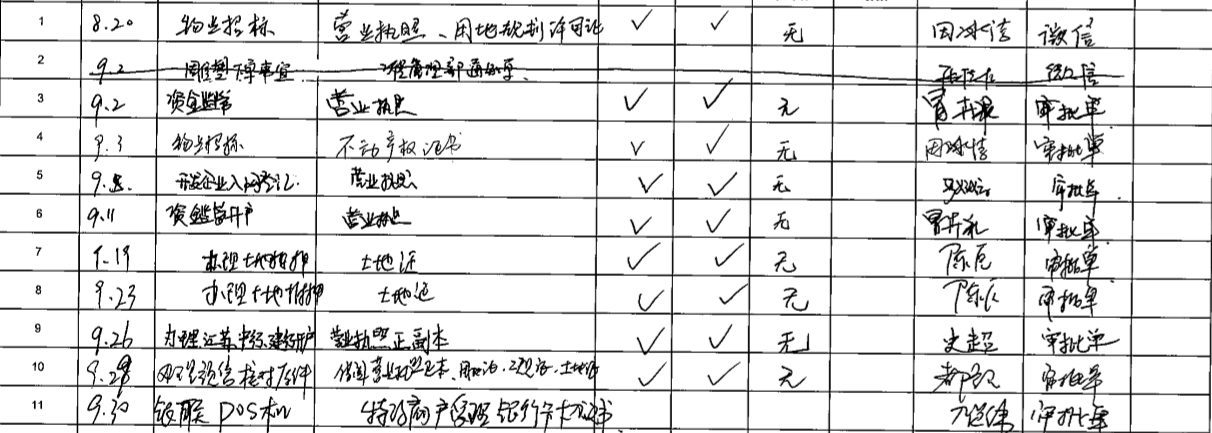 1 8.20 物业招标 营业执照、用地规划许可证 ✓ ✓ 无 周冰信 微信
2 9.2 事宜 工程管理部通知单 微信
3 9.2 资金监管 营业执照 ✓ ✓ 无 审批单
4 9.3 物业招标 不动产权证书 ✓ ✓ 无 周冰信 审批单
5 9. 开发企业入网登记 营业执照 ✓ ✓ 无 审批单
6 9.11 资金监管开户 营业执照 ✓ ✓ 无 审批单
7 9.19 办理土地抵押 土地证 ✓ ✓ 无 陈辰 审批单
8 9.23 办理土地抵押 土地证 ✓ ✓ 无 陈辰 审批单
9 9.26 办理江苏 建行开户 营业执照正副本 ✓ ✓ 无 史超 审批单
10 9.28 办理预售核对原件 借阅营业执照正本、用地证、 土地证 ✓ ✓ 无 审批单
11 9.30 银联POS机 特约商户受理银行卡 书 审批单